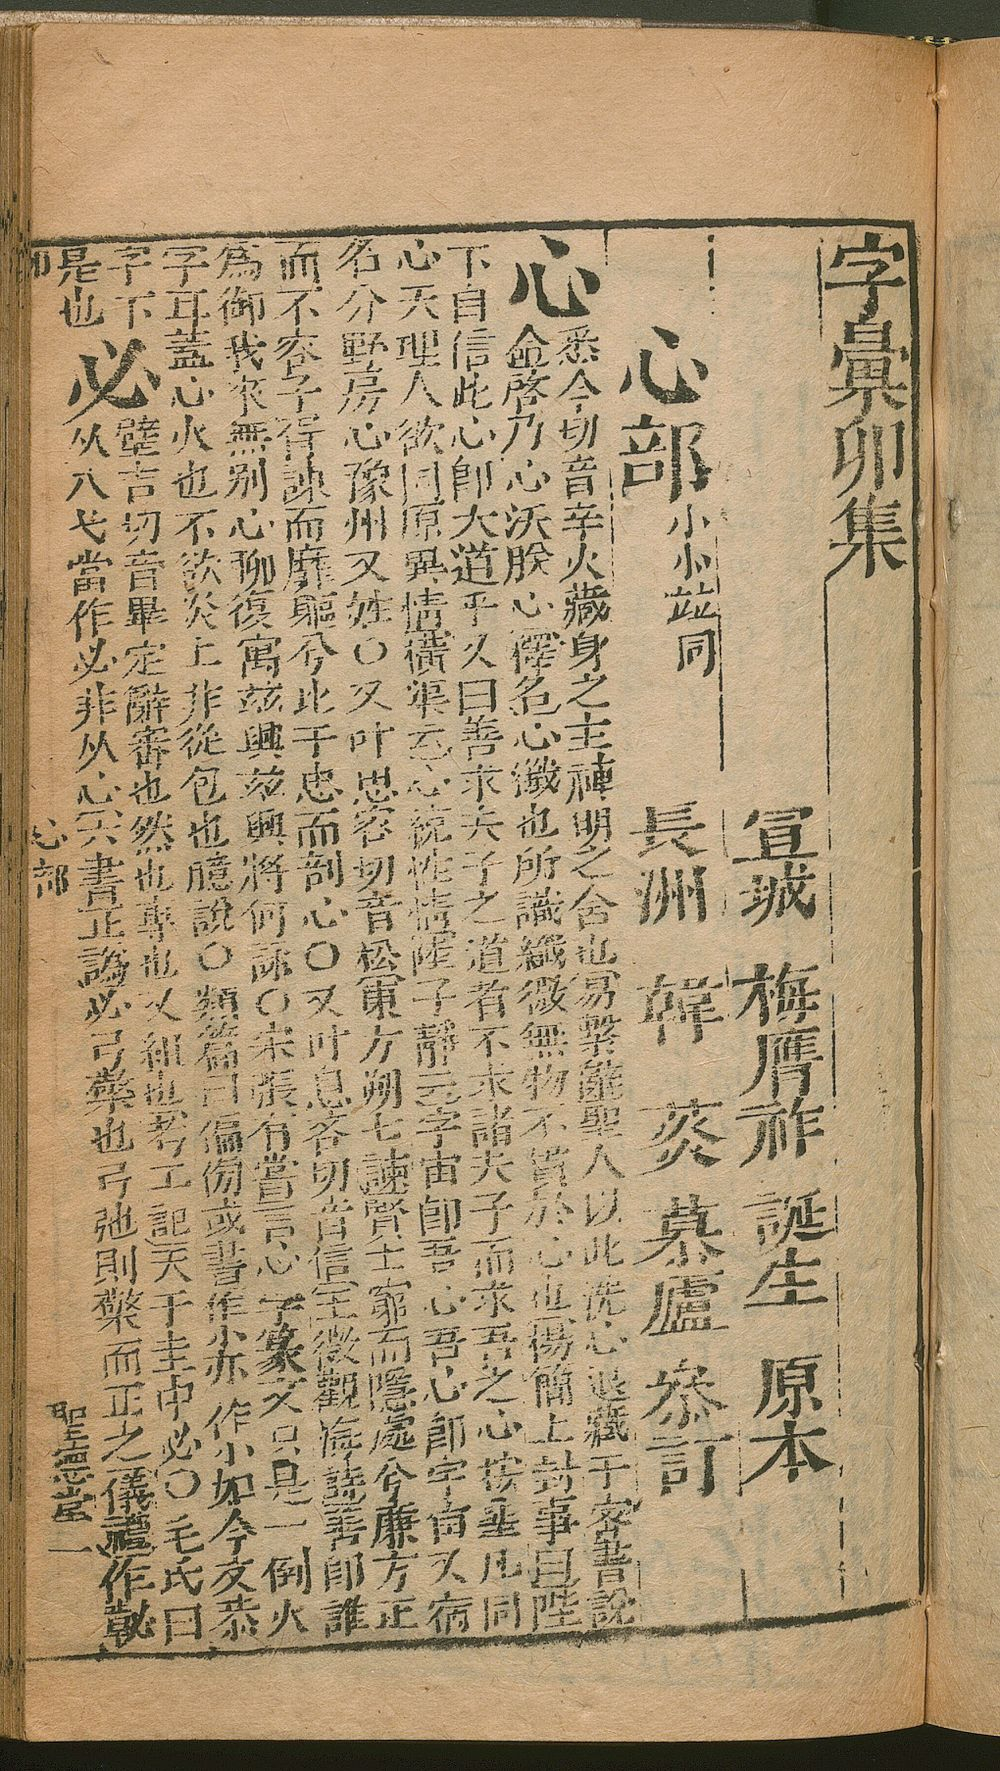 字彙卯集
宣城 梅膺祚 誕生 原本
長洲 韓菼 慕廬 叅訂
心部 小㣺竝同
心 悉今切音辛火藏身之主神明之舍也易繫聖人以此洗心退藏于密書說
命啓乃心沃朕心釋名心纖也所識纖微無物不貫於心也楊簡上封事曰陛
下自信此心卽大道乎又曰善求夫子之道者不求諸夫子而求吾之心按垂凡同
心天理人欲同原異情橫渠云心統性情陸子靜云宇宙卽吾心吾心卽宇宙又宿
名分野房心豫州又姓〇又叶思容切音松東方朔七諫賢士窮而隱處兮廉方正
而不容子胥諫而靡軀兮比干忠而剖心〇又叶息容切音信王微觀海詩善卽誰
爲御我來無別心聊復寓茲興茲興將何詠〇宋張有嘗言心字篆文只是一倒火
字耳蓋心火也不欲炎上非從包也臆說〇類篇曰偏傍或書作㣺亦作小如今文恭
字下是也
必 壁吉切音畢定辭審也然也專也又組也考工記天子圭中必〇毛氏曰
从八弋當作必非从心六書正譌必弓檠也弓弛則檠而正之儀禮作䪐
心部
聖德堂
一